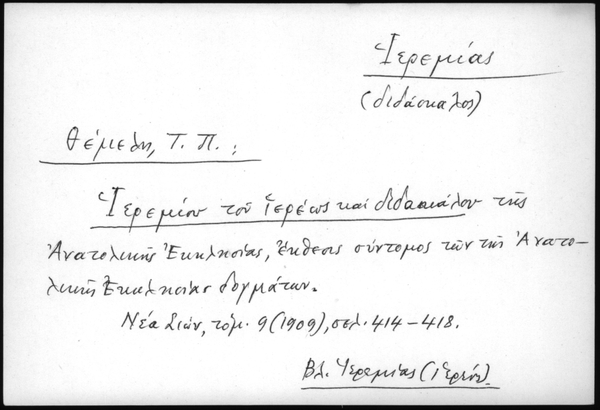 Ἱερεμίας
(διδάσκαλος)
Θέμελη, Τ. Π. :
Ἱερεμίου τοῦ ἱερέως καὶ διδασκάλου τῆς
Ἀνατολικῆς Ἐκκλησίας, ἔκθεσις σύντομος τῶν τῆς Ἀνατο-
λικῆς Ἐκκλησίας δογμάτων.
Νέα Σιών, τόμ. 9 (1909), σελ. 414-418.
Βλ. Ἱερεμίας (ἱερεύς).